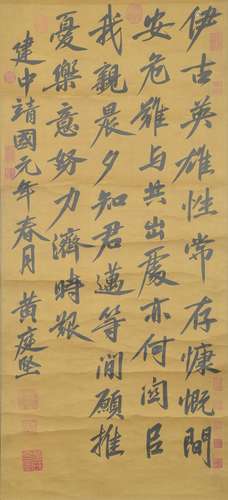 伊古英雄性常存慷慨間
安危雖与共出處亦何關臣
我觀晨夕知君邁等閒願推
憂樂意努力濟時艱
建中靖國元年春月黃庭堅